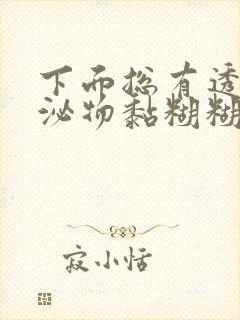 下而总有透
泌物黏糊糊
寂小恬